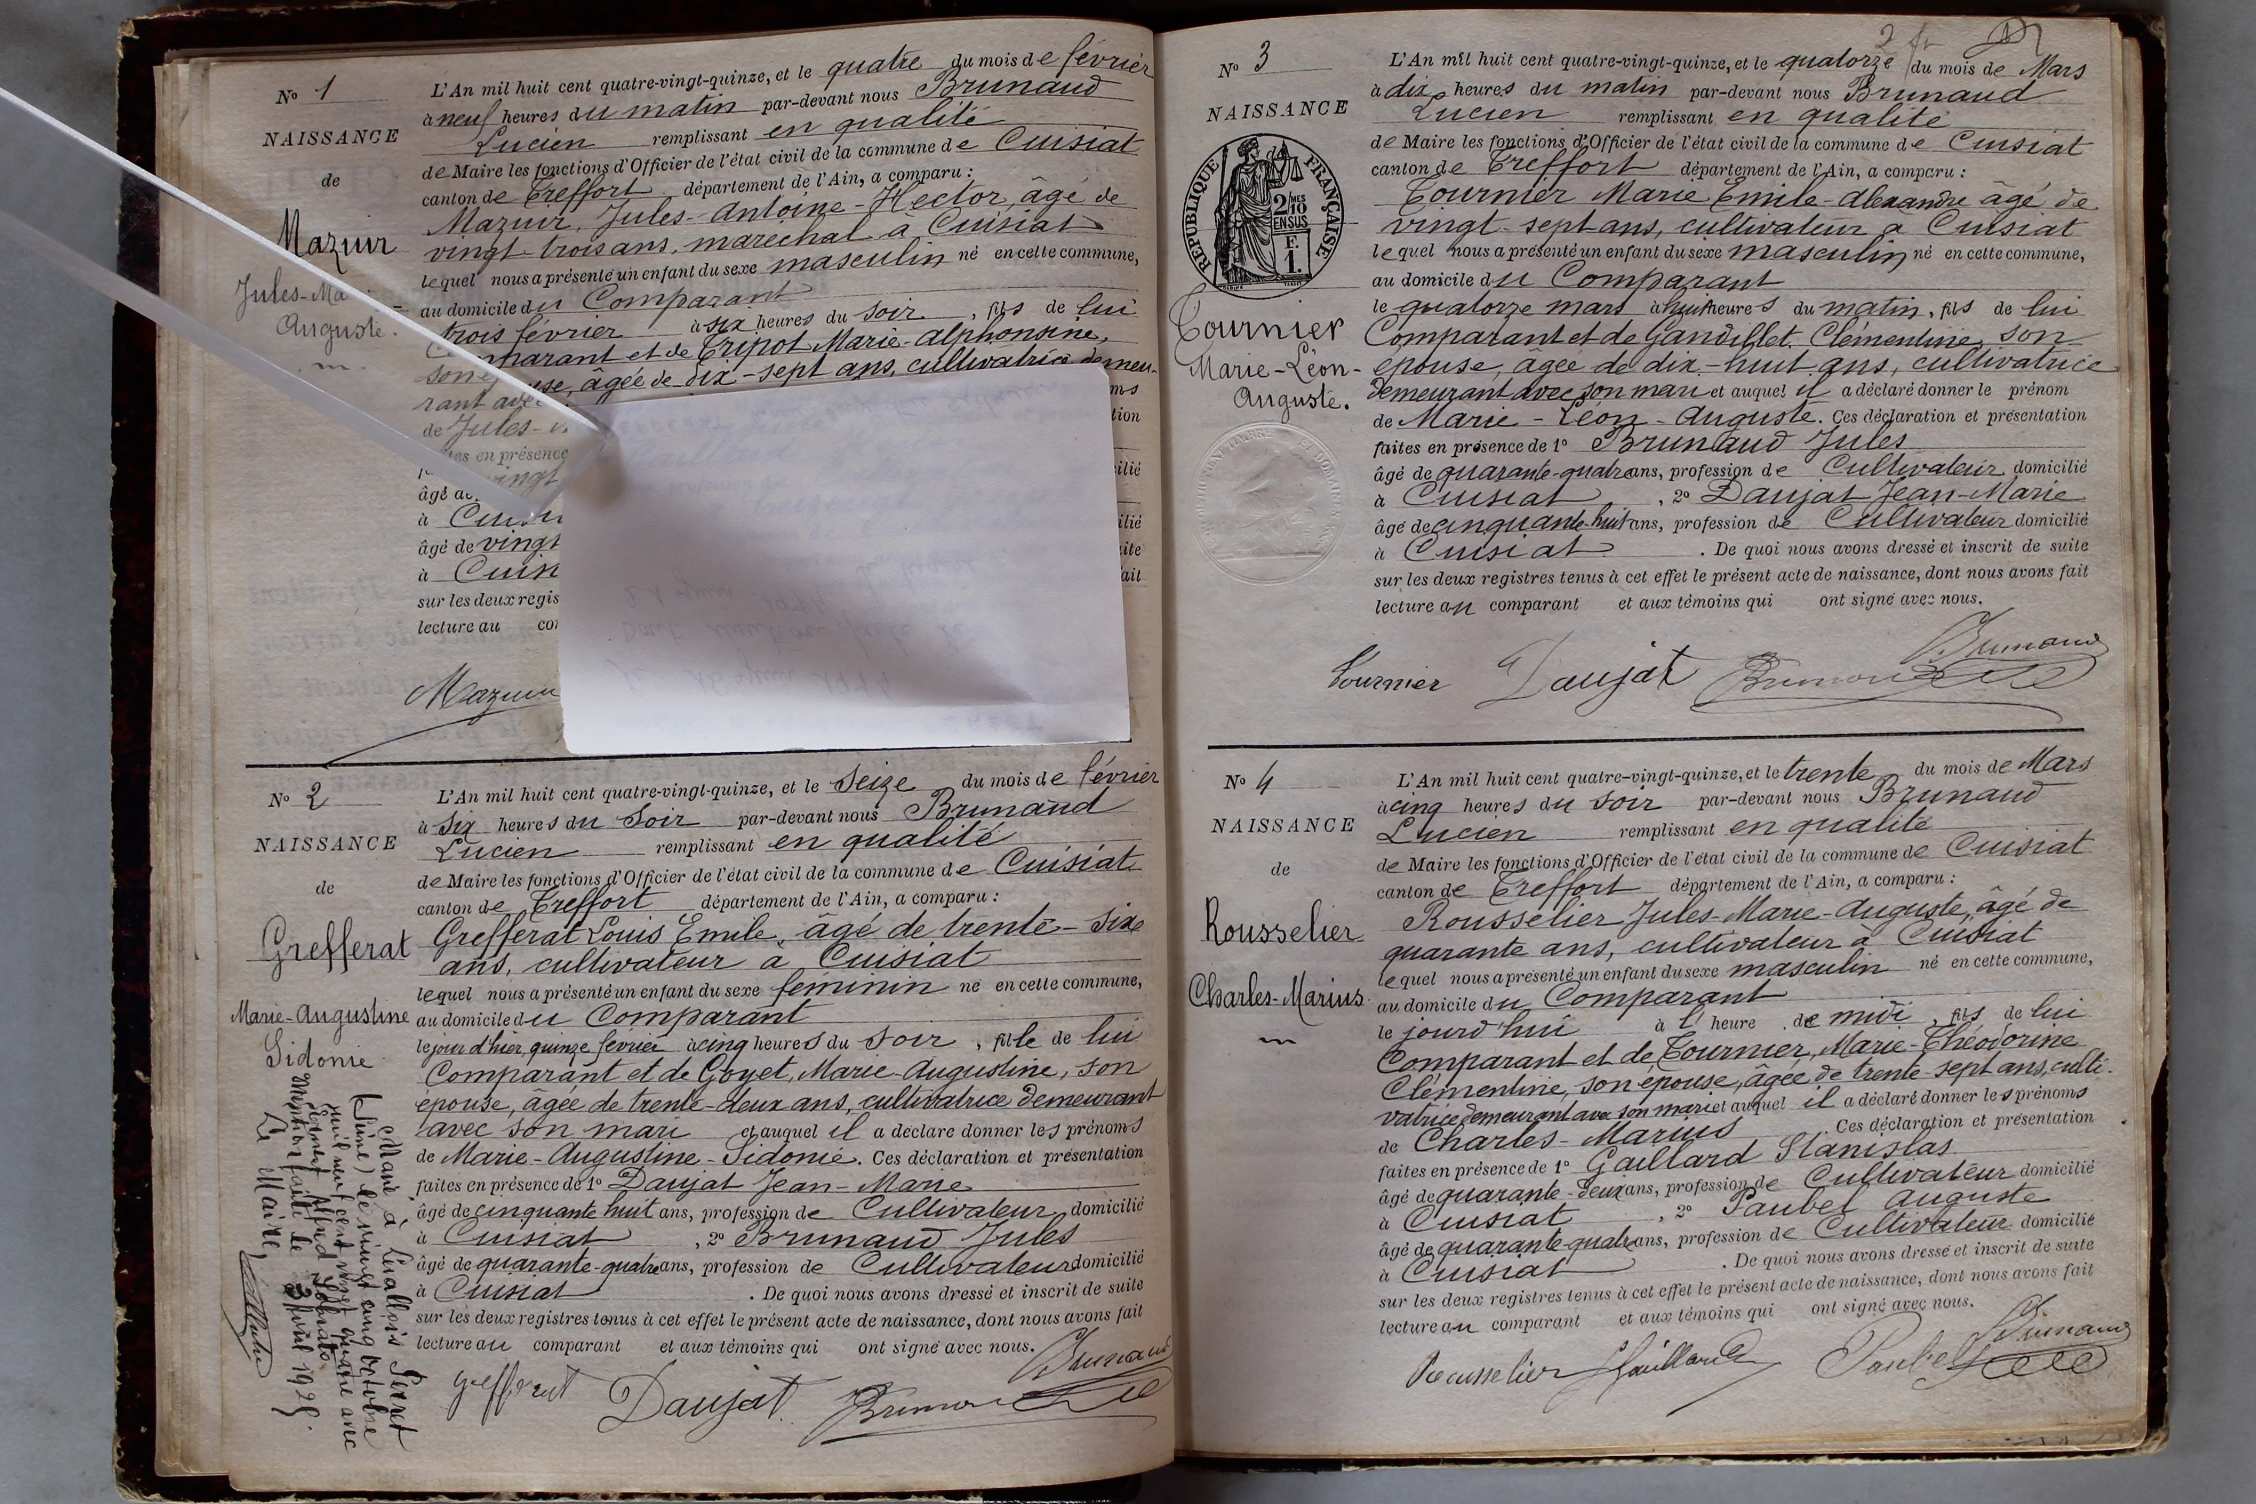 No 1
NAISSANCE
de
Mazuir
Jules-Ma
Auguste.
L'An mil huit cent quatre-vingt-quinze, et le quatre du mois de février
à neuf heures du matin par-devant nous Brunaud
Lucien remplissant en qualité
de Maire les fonctions d'Officier de l'état civil de la commune de Cuisiat
canton de Treffort département de l'Ain, a comparu :
Mazuir, Jules-Antoine-Hector, âgé de
vingt-trois ans, marechal à Cuisiat
lequel nous a présenté un enfant du sexe masculin né en cette commune,
au domicile du Comparant
trois fevrier à six heures du soir, fils de lui
parant et de Tripot Marie-Alphonsine,
son épouse, âgée de dix-sept ans, cultivatrice demeu-
rant avec
de Jules-
en présence
vingt
âgé de
à
âgé de vingt
à
sur les deux regis
lecture au
Mazuir
No 2
NAISSANCE
de
Grefferat
Marie-Augustine
Sidonie
Marié à Levallois Perret
(Seine) le vingt cinq octobre
mil neuf cent vingt quatre avec
Alfred
Mention faite le 3 Avril 1925.
Le Maire,
L'An mil huit cent quatre-vingt-quinze, et le Seize du mois de février
à six heures du Soir par-devant nous Brunaud
Lucien remplissant en qualité
de Maire les fonctions d'Officier de l'état civil de la commune de Cuisiat
canton de Treffort département de l'Ain, a comparu :
Grefferat Louis Emile, âgé de trente-six
ans, cultivateur à Cuisiat
lequel nous a présenté un enfant du sexe feminin né en cette commune,
au domicile du Comparant
le jour d'hier, quinze fevrier à cinq heures du Soir, fille de lui
Comparant et de Goyet, Marie-Augustine, son
épouse, âgée de trente-deux ans, cultivatrice demeurant
avec son mari et auquel il a déclaré donner les prénoms
de Marie-Augustine-Sidonie. Ces déclaration et présentation
faites en présence de 1º Daujat Jean-Marie
âgé de cinquante huit ans, profession de Cultivateur domicilié
à Cuisiat, 2º Brunaud Jules
âgé de quarante-quatre ans, profession de Cultivateur domicilié
à Cuisiat. De quoi nous avons dressé et inscrit de suite
sur les deux registres tenus à cet effet le présent acte de naissance, dont nous avons fait
lecture au comparant et aux témoins qui ont signé avec nous.
Grefferat Daujat Brunaud Brunaud
No 3
NAISSANCE
RÉPUBLIQUE FRANÇAISE
2/10
EN SUS
F.
1.
Tournier
Marie-Léon-
Auguste.
L'An mil huit cent quatre-vingt-quinze, et le quatorze du mois de Mars
à dix heures du matin par-devant nous Brunaud
Lucien remplissant en qualité
de Maire les fonctions d'Officier de l'état civil de la commune de Cuisiat
canton de Treffort département de l'Ain, a comparu :
Tournier Marie Emile-Alexandre âgé de
vingt-sept ans, cultivateur à Cuisiat
lequel nous a présenté un enfant du sexe masculin né en cette commune,
au domicile du Comparant
le quatorze mars à huit heures du matin, fils de lui
Comparant et de Gandillet, Clémentine, son
épouse, âgée de dix-huit ans, cultivatrice
demeurant avec son mari et auquel il a déclaré donner le prénom
de Marie-Léon-Auguste. Ces déclaration et présentation
faites en présence de 1º Brunaud Jules
âgé de quarante-quatre ans, profession de Cultivateur domicilié
à Cuisiat, 2º Daujat Jean-Marie
âgé de cinquante-huit ans, profession de Cultivateur domicilié
à Cuisiat. De quoi nous avons dressé et inscrit de suite
sur les deux registres tenus à cet effet le présent acte de naissance, dont nous avons fait
lecture au comparant et aux témoins qui ont signé avec nous.
Tournier Daujat Brunaud Brunaud
No 4
NAISSANCE
de
Rousselier
Charles-Marius
L'An mil huit cent quatre-vingt-quinze, et le trente du mois de Mars
à cinq heures du soir par-devant nous Brunaud
Lucien remplissant en qualité
de Maire les fonctions d'Officier de l'état civil de la commune de Cuisiat
canton de Treffort département de l'Ain, a comparu :
Rousselier Jules-Marie-Auguste, âgé de
quarante ans, cultivateur à Cuisiat
lequel nous a présenté un enfant du sexe masculin né en cette commune,
au domicile du Comparant
le jourd'hui à l'heure de midi, fils de lui
Comparant et de Tournier, Marie-Théodorine
Clémentine, son épouse, âgée de trente-sept ans, culti-
vatrice demeurant avec son mari et auquel il a déclaré donner les prénoms
de Charles-Marius Ces déclaration et présentation
faites en présence de 1º Gaillard Stanislas
âgé de quarante-deux ans, profession de Cultivateur domicilié
à Cuisiat, 2º Paubel Auguste
âgé de quarante-quatre ans, profession de Cultivateur domicilié
à Cuisiat. De quoi nous avons dressé et inscrit de suite
sur les deux registres tenus à cet effet le présent acte de naissance, dont nous avons fait
lecture au comparant et aux témoins qui ont signé avec nous.
Rousselier Gaillard Paubel Brunaud